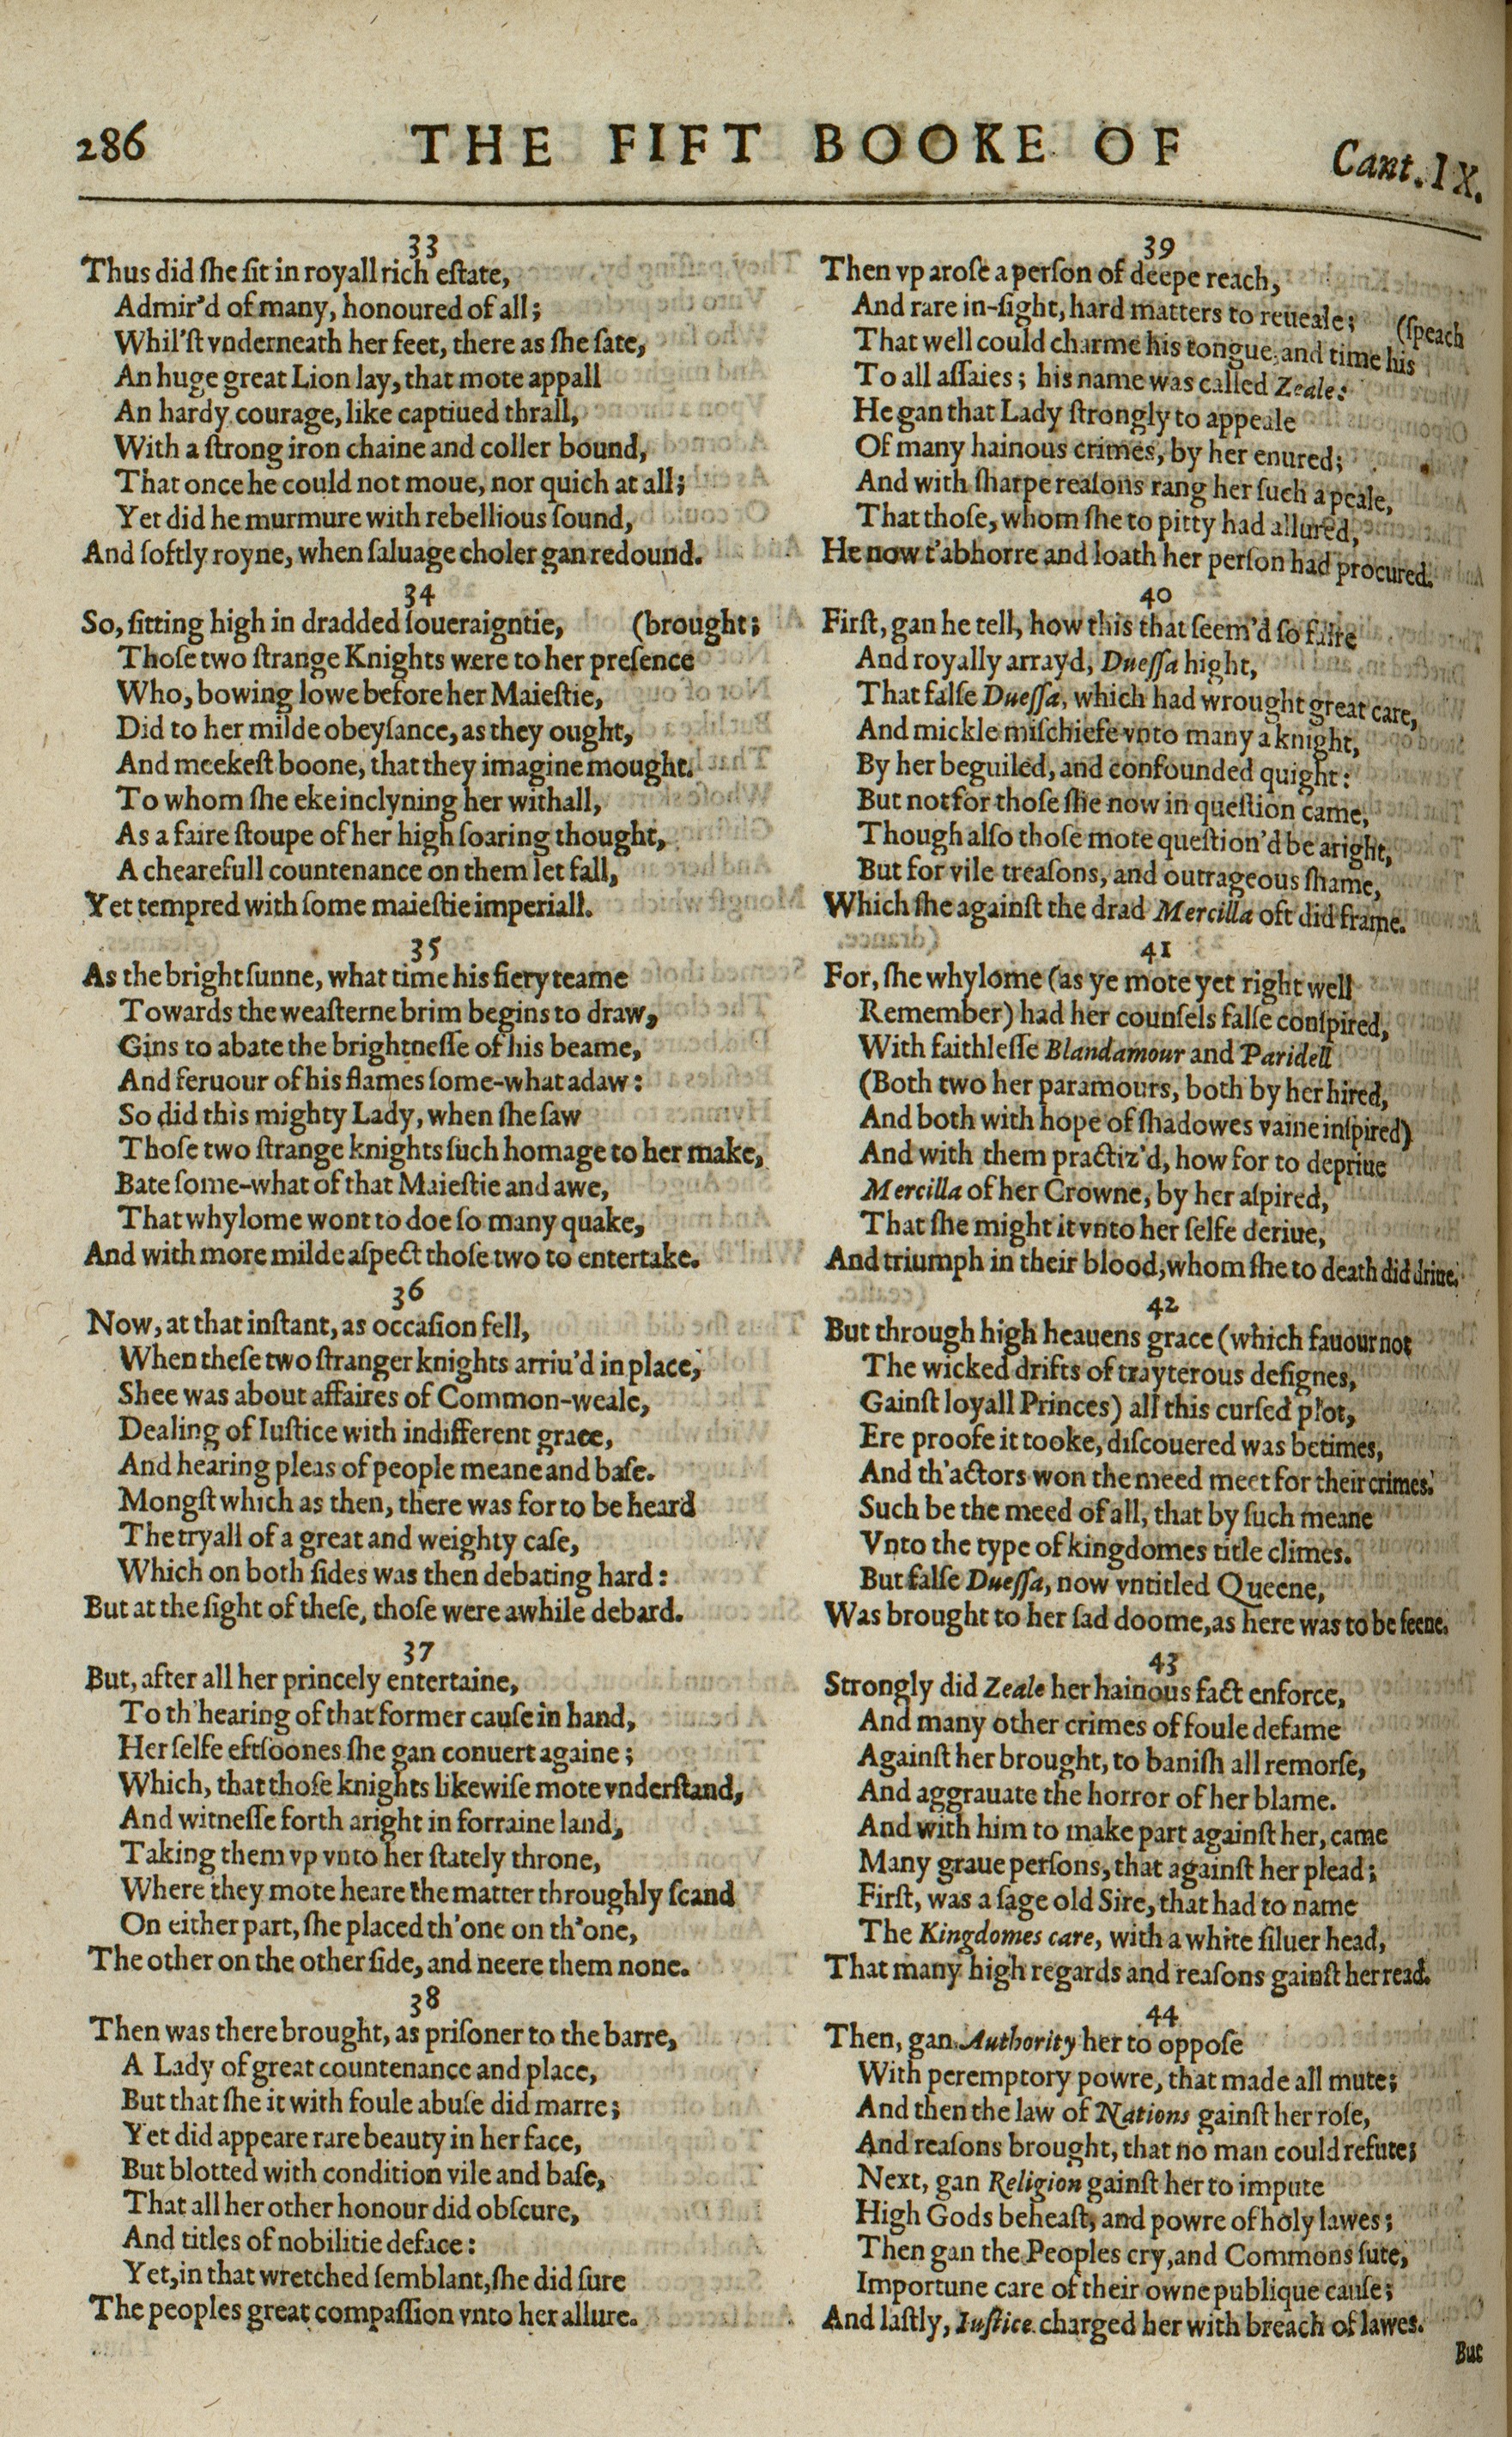 286 THE FIFT BOOKE OF Cant. IX.
33
Thus did ſhe ſit in royall rich eſtate,
Admir'd of many, honoured of all;
Whil'ſt vnderneath her feet, there as ſhe ſate,
An huge great Lion lay, that mote appall
An hardy courage, like captiued thrall,
With a ſtrong iron chaine and coller bound,
That once he could not moue, nor quich at all;
Yet did he murmure with rebellious ſound,
And ſoftly royne, when ſaluage choler gan redound.
34
So, ſitting high in dradded ſoueraigntie, (brought;
Thoſe two ſtrange Knights were to her preſence
Who, bowing lowe before her Maieſtie,
Did to her milde obeyſance, as they ought,
And meekeſt boone, that they imagine mought.
To whom ſhe eke inclyning her withall,
As a faire ſtoupe of her high ſoaring thought,
A chearefull countenance on them let fall,
Yet tempred with ſome maieſtie imperiall.
35
As the bright ſunne, what time his fiery teame
Towards the weaſterne brim begins to draw,
Gins to abate the brightneſſe of his beame,
And feruour of his flames ſome-what adaw:
So did this mighty Lady, when ſhe ſaw
Thoſe two ſtrange knights ſuch homage to her make,
Bate ſome-what of that Maieſtie and awe,
That whylome wont to doe ſo many quake,
And with more milde aſpect thoſe two to entertake.
36
Now, at that inſtant, as occaſion fell,
When theſe two ſtranger knights arriu'd in place,
Shee was about affaires of Common-weale,
Dealing of Iuſtice with indifferent grace,
And hearing pleas of people meane and baſe.
Mongſt which as then, there was for to be heard
The tryall of a great and weighty caſe,
Which on both ſides was then debating hard:
But at the ſight of theſe, thoſe were awhile debard.
37
But, after all her princely entertaine,
To th'hearing of that former cauſe in hand,
Her ſelfe eftſoones ſhe gan conuert againe;
Which, that thoſe knights likewiſe mote vnderſtand,
And witneſſe forth aright in forraine land,
Taking them vp vnto her ſtately throne,
Where they mote heare the matter throughly ſcand
On either part, ſhe placed th'one on th'one,
The other on the other ſide, and neere them none.
38
Then was there brought, as priſoner to the barre,
A Lady of great countenance and place,
But that ſhe it with foule abuſe did marre;
Yet did appeare rare beauty in her face,
But blotted with condition vile and baſe,
That all her other honour did obſcure,
And titles of nobilitie deface:
Yet, in that wretched ſemblant, ſhe did ſure
The peoples great compaſſion vnto her allure.
39
Then vp aroſe a perſon of deepe reach,
And rare in-ſight, hard matters to reueale; (ſpeach
That well could charme his tongue, and time his
To all aſſaies; his name was called Zeale:
He gan that Lady ſtrongly to appeale
Of many hainous crimes, by her enured;
And with ſharpe reaſons rang her ſuch a peale,
That thoſe, whom ſhe to pitty had allured,
He now t'abhorre and loath her perſon had procured.
40
Firſt, gan he tell, how this that ſeem'd ſo faire
And royally arrayd, Dueſſa hight,
That falſe Dueſſa, which had wrought great care,
And mickle miſchiefe vnto many a knight,
By her beguiled, and confounded quight:
But not for thoſe ſhe now in queſtion came,
Though alſo thoſe mote queſtion'd be aright,
But for vile treaſons, and outrageous ſhame,
Which ſhe againſt the drad Mercilla oft did frame.
41
For, ſhe whylome (as ye mote yet right well
Remember) had her counſels falſe conſpired,
With faithleſſe Blandamour and Paridell
(Both two her paramours, both by her hired,
And both with hope of ſhadowes vaine inſpired)
And with them practiz'd, how for to depriue
Mercilla of her Crowne, by her aſpired,
That ſhe might it vnto her ſelfe deriue,
And triumph in their blood, whom ſhe to death did driue.
42
But through high heauens grace (which fauour not
The wicked drifts of trayterous deſignes,
Gainſt loyall Princes) all this curſed plot,
Ere proofe it tooke, diſcouered was betimes,
And th'actors won the meed meet for their crimes.
Such be the meed of all, that by ſuch meane
Vnto the type of kingdomes title climes.
But falſe Dueſſa, now vntitled Queene,
Was brought to her ſad doome, as here was to be ſeene.
43
Strongly did Zeale her hainous fact enforce,
And many other crimes of foule defame
Againſt her brought, to baniſh all remorſe,
And aggrauate the horror of her blame.
And with him to make part againſt her, came
Many graue perſons, that againſt her plead;
Firſt, was a ſage old Sire, that had to name
The Kingdomes care, with a white ſiluer head,
That many high regards and reaſons gainſt her read.
44
Then, gan Authority her to oppoſe
With peremptory powre, that made all mute;
And then the law of Nations gainſt her roſe,
And reaſons brought, that no man could refute;
Next, gan Religion gainſt her to impute
High Gods beheaſt, and powre of holy lawes;
Then gan the Peoples cry, and Commons ſute,
Importune care of their owne publique cauſe;
And laſtly, Iuſtice charged her with breach of lawes.
But